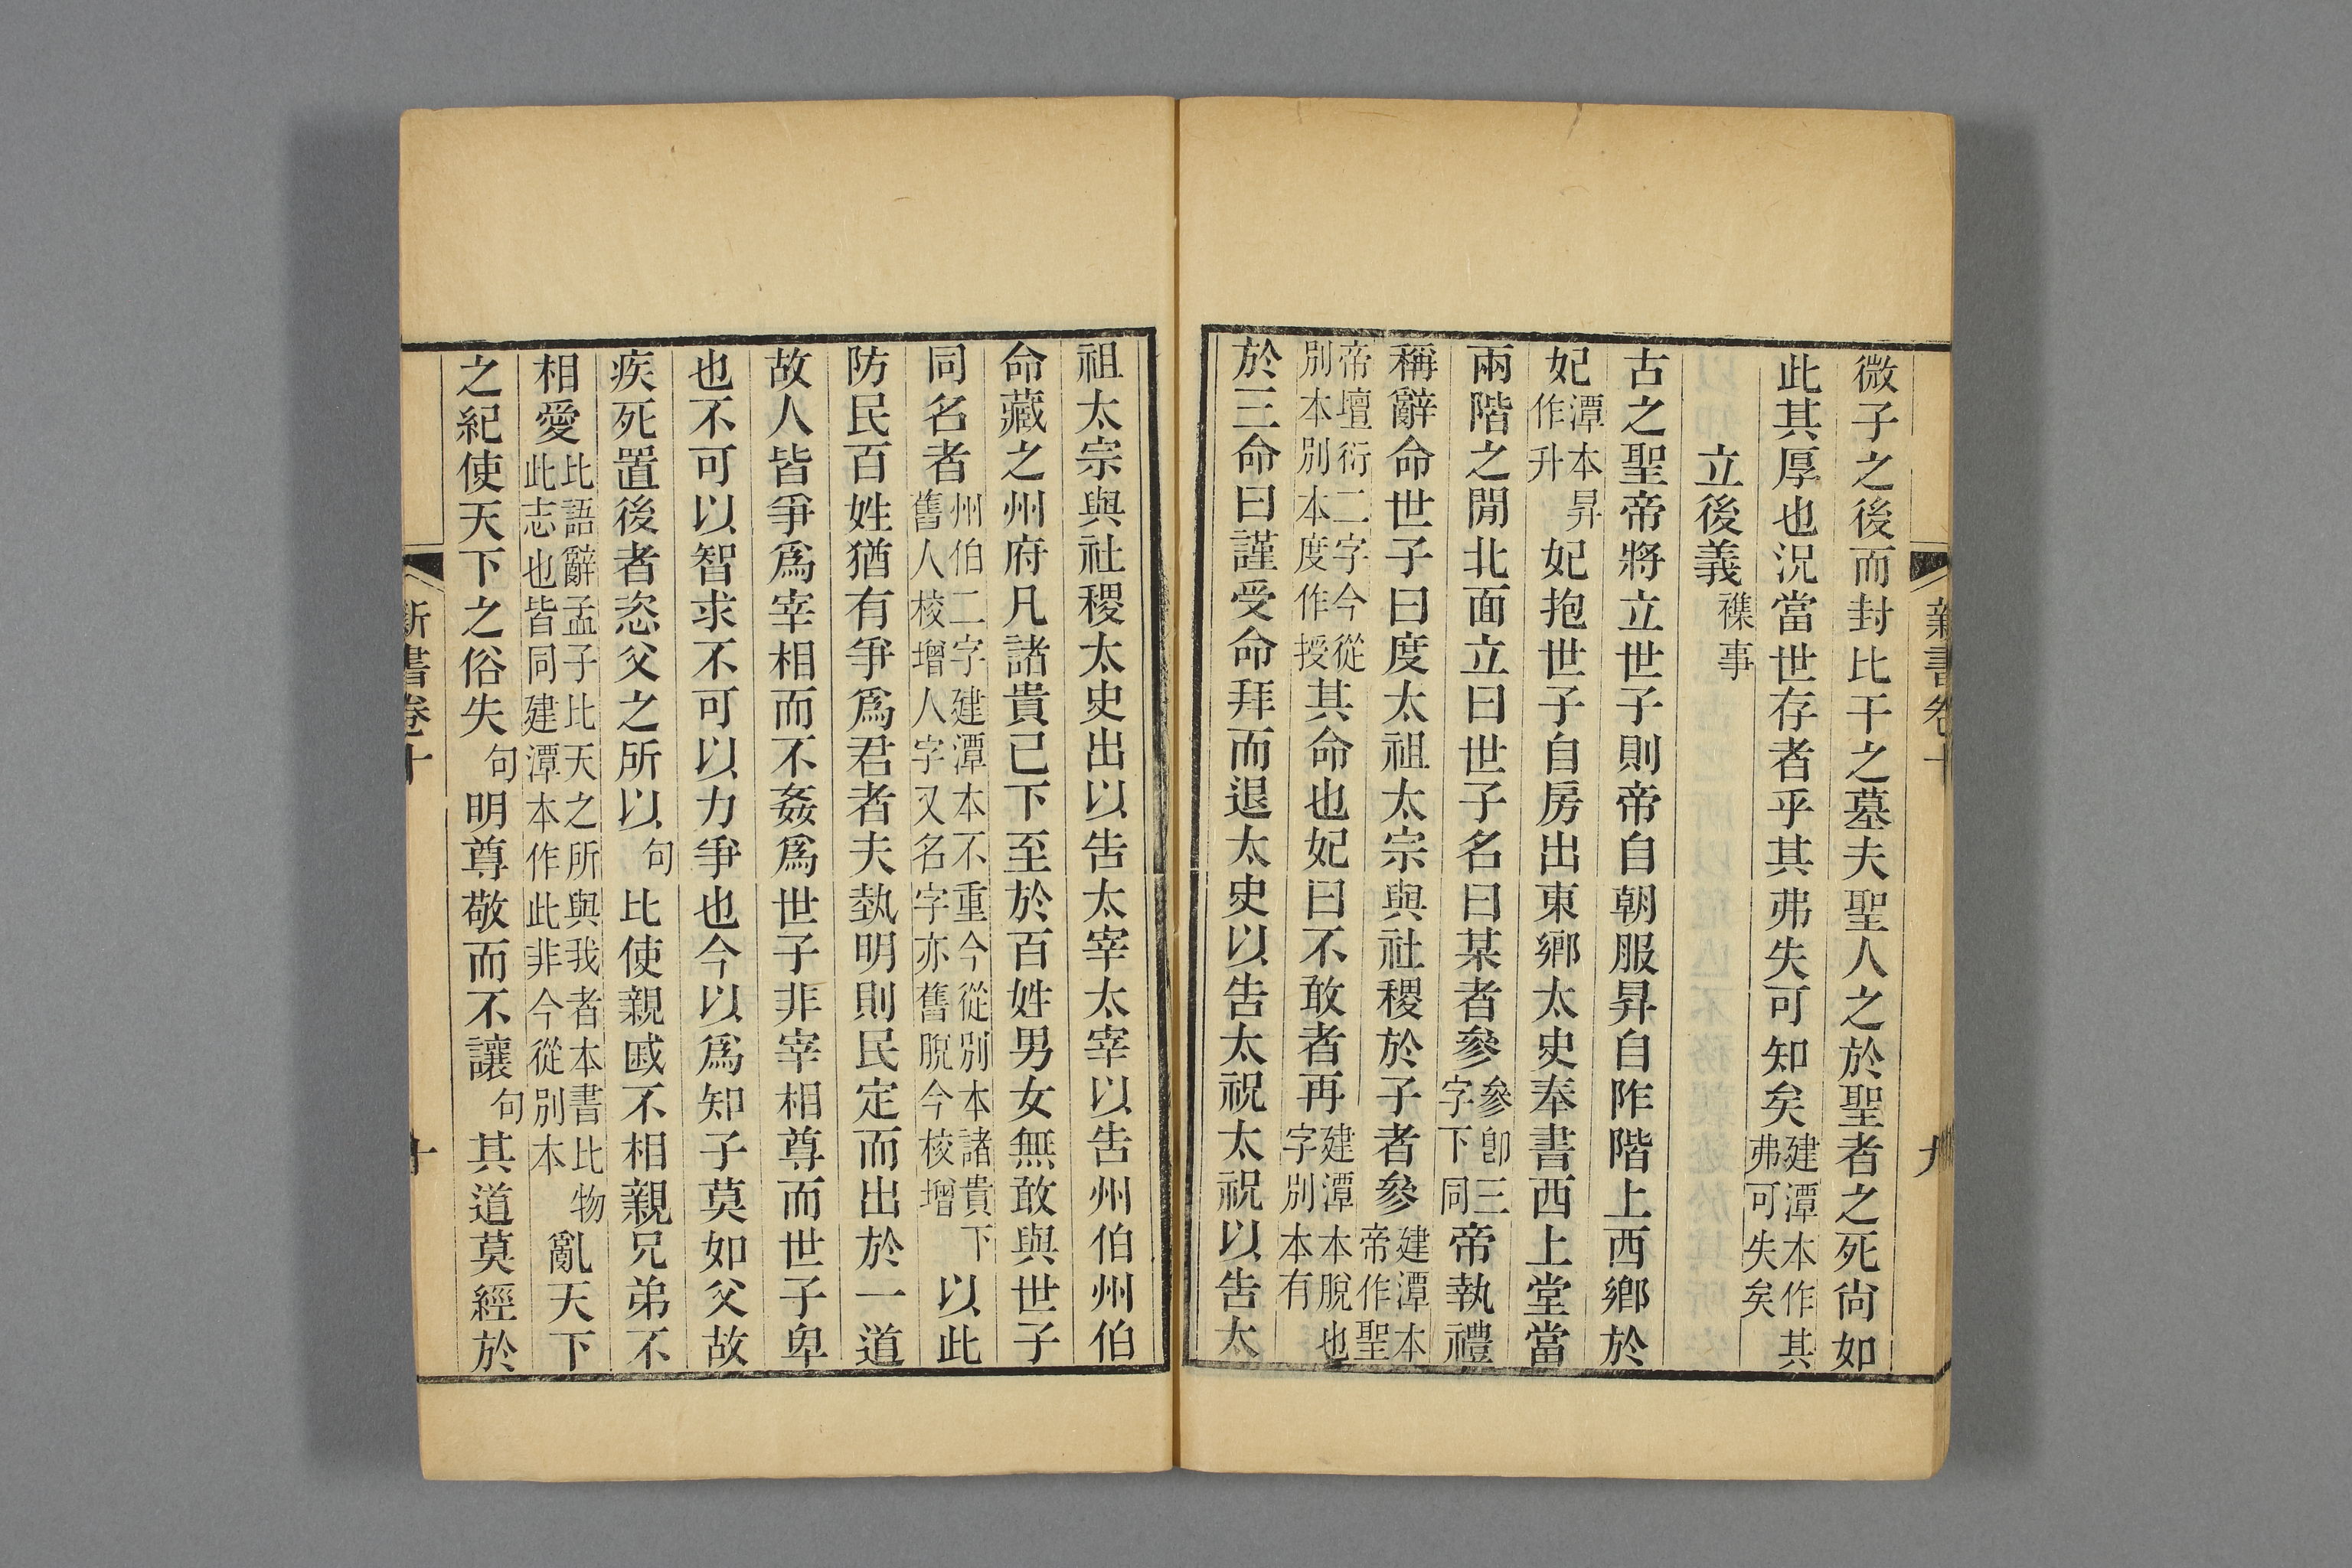 新書卷十 九
微子之後而封比干之墓夫聖人之於聖者之死尙如
此其厚也況當世存者乎其弗失可知矣建潭本作其弗可失矣
立後義襍事
古之聖帝將立世子則帝自朝服昇自阼階上西鄉於
妃潭本昇作升妃抱世子自房出東鄉太史奉書西上堂當
兩階之閒北面立曰世子名曰某者參參卽三字下同帝執禮
稱辭命世子曰度太祖太宗與社稷於子者參建潭本帝作聖
帝壇衍二字今從別本別本度作授其命也妃曰不敢者再建潭本脫也字別本有
於三命曰謹受命拜而退太史以告太祝太祝以告太
祖太宗與社稷太史出以告太宰太宰以告州伯州伯
命藏之州府凡諸貴已下至於百姓男女無敢與世子
同名者州伯二字建潭本不重今從別本諸貴下舊人校增人字又名字亦舊脫今校增以此
防民百姓猶有爭爲君者夫埶明則民定而出於一道
故人皆爭爲宰相而不姦爲世子非宰相尊而世子卑
也不可以智求不可以力爭也今以爲知子莫如父故
疾死置後者恣父之所以句比使親戚不相親兄弟不
相愛比語辭孟子比天之所與我者本書比物此志也皆同建潭本作此非今從別本亂天下
之紀使天下之俗失句明尊敬而不讓句其道莫經於
新書卷十 十